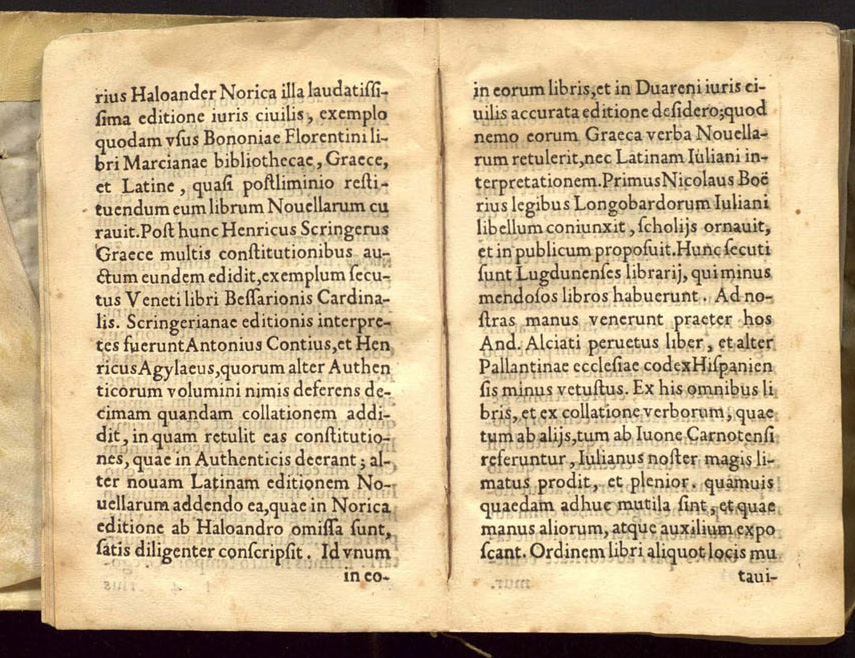 rius Haloander Norica illa laudatiſſi-
ſima editione iuris ciuilis, exemplo
quodam vſus Bononiae Florentini li-
bri Marcianae bibliothecae, Graece,
et Latine, quaſi poſtliminio reſti-
tuendum eum librum Nouellarum cu
rauit. Poſt hunc Henricus Scringerus
Graece multis conſtitutionibus au-
ctum eundem edidit, exemplum ſecu-
tus Veneti libri Beſſarionis Cardina-
lis. Scringerianae editionis interpre-
tes fuerunt Antonius Contius, et Hen
ricus Agylaeus, quorum alter Authen
ticorum volumini nimis deferens de-
cimam quandam collationem addi-
dit, in quam retulit eas conſtitutio-
nes, quae in Authenticis deerant; al-
ter nouam Latinam editionem No-
uellarum addendo ea, quae in Norica
editione ab Haloandro omiſſa ſunt,
ſatis diligenter conſcripſit. Id vnum
in eo-
in eorum libris, et in Duareni iuris ci-
uilis accurata editione deſidero; quod
nemo eorum Graeca verba Nouella-
rum retulerit, nec Latinam Iuliani in-
terpretationem. Primus Nicolaus Boë
rius legibus Longobardorum Iuliani
libellum coniunxit, ſcholijs ornauit,
et in publicum propoſuit. Hunc ſecuti
ſunt Lugdunenſes librarij, qui minus
mendoſos libros habuerunt. Ad no-
ſtras manus venerunt praeter hos
And. Alciati peruetus liber, et alter
Pallantinae eccleſiae codex Hiſpanien
ſis minus vetuſtus. Ex his omnibus li
bris, et ex collatione verborum, quae
tum ab alijs, tum ab Iuone Carnotenſi
referuntur, Iulianus noſter magis li-
matus prodit, et plenior. quamuis
quaedam adhuc mutila ſint, et quae
manus aliorum, atque auxilium expo
ſcant. Ordinem libri aliquot locis mu
taui-